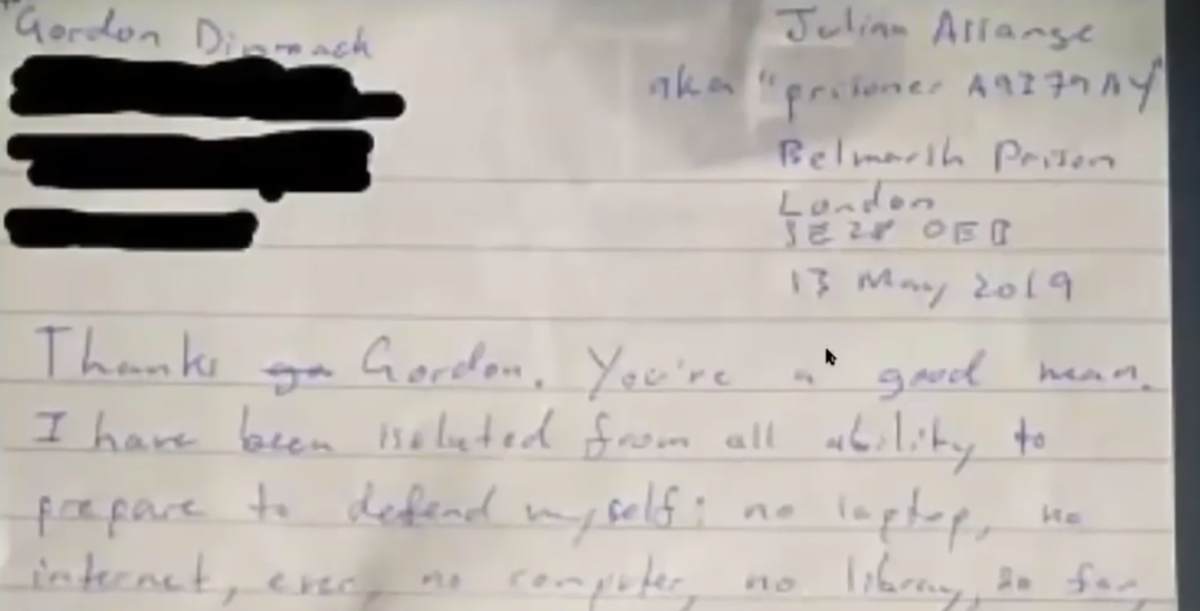 Gordon Dimmack
Julian Assange
aka "prisoner A9379AY"
Belmarsh Prison
London
SE28 0EB
13 May 2019
Thanks Gordon. You're a good man.
I have been isolated from all ability to
prepare to defend myself: no laptop, no
internet, ever, no computer, no library, so far,